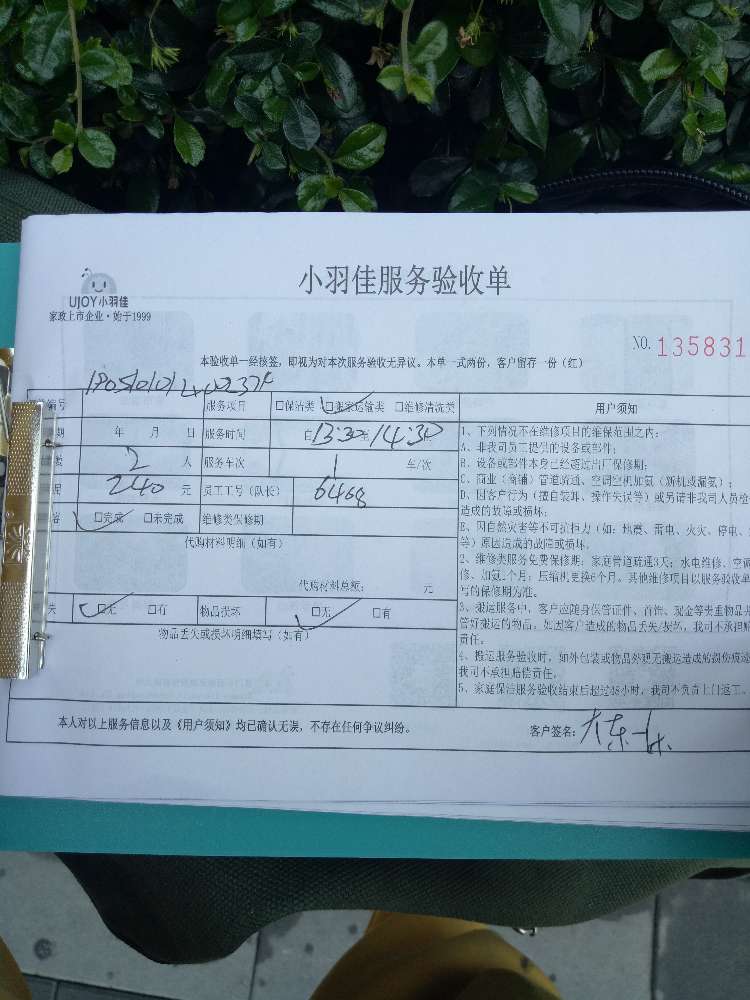 小羽佳服务验收单
UJOY小羽佳
家政上市企业·始于1999
NO. 135831
本验收单一经核签，即视为对本次服务验收无异议。本单一式两份，客户留存一份（红）
编号 服务项目 □保洁类 □搬家运输类 □维修清洗类
期 年 月 日 服务时间 自13:30至14:30
数 2 人 服务车次 1 车/次
240 元 员工工号（队长） 6468
容 □完成 □未完成 维修类保修期
代购材料明细（如有）
代购材料总额： 元
失 □无 □有 物品损坏 □无 □有
物品丢失或损坏明细填写（如有）
用户须知
1、下列情况不在维修项目的维保范围之内：
A、非我司员工提供的设备或部件；
B、设备或部件本身已经超过出厂保修期；
C、商业（商铺）管道疏通、空调空机加氨（新机或漏氨）；
D、因客户行为（擅自装卸、操作失误等）或另请非我司人员检
造成的故障或损坏。
E、因自然灾害等不可抗拒力（如：地震、雷电、火灾、停电、
等）原因造成的故障或损坏。
2、维修类服务免费保修期：家庭管道疏通3天；水电维修、空调
修、加氨1个月；压缩机更换6个月。其他维修项目以服务验收单
写的保修期为准。
3、搬运服务中，客户应随身保管证件、首饰、现金等贵重物品并
管好搬运的物品。如因客户造成的物品丢失/损坏，我司不承担赔
责任。
4、搬运服务验收时，如外包装或物品外观无搬运造成的损伤痕迹
我司不承担赔偿责任。
5、家庭保洁服务验收结束后超过48小时，我司不负责上门返工。
本人对以上服务信息以及《用户须知》均已确认无误，不存在任何争议纠纷。
客户签名：